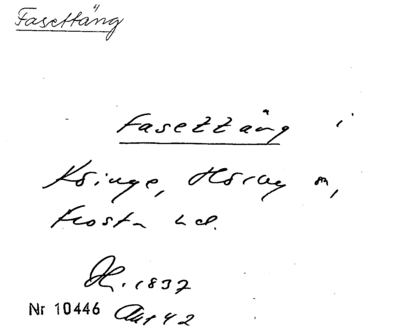 Fasettäng
Fasettäng i
Köinge, Hörby sn,
Frosta hd.
H. 1837
Nr 10446